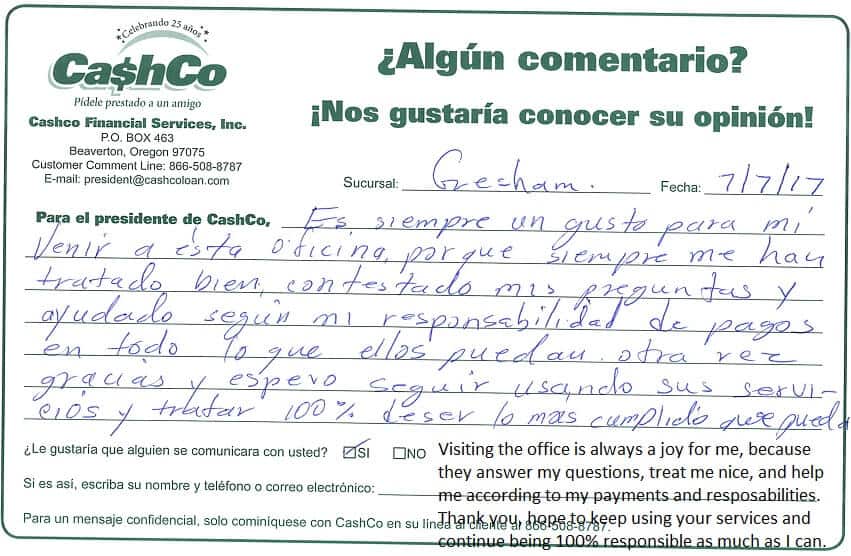 Celebrando 25 años
Ca$hCo
Pídele prestado a un amigo
Cashco Financial Services, Inc.
P.O. BOX 463
Beaverton, Oregon 97075
Customer Comment Line: 866-508-8787
E-mail: president@cashcoloan.com
¿Algún comentario?
¡Nos gustaría conocer su opinión!
Sucursal: Gresham. Fecha: 7/7/17
Para el presidente de CashCo, Es siempre un gusto para mi
Venir a ésta oficina, porque siempre me han
tratado bien, contestado mis preguntas y
ayudado según mi responsabilidad de pagos
en todo lo que ellos puedan. otra vez
gracias y espero seguir usando sus servi-
ciós y tratar 100% deser lo mas cumplido que pueda
¿Le gustaría que alguien se comunicara con usted? ☑SI ☐NO
Si es así, escriba su nombre y teléfono o correo electrónico:
Para un mensaje confidencial, solo cominíquese con CashCo en su línea al cliente al 866-508-8787.
Visiting the office is always a joy for me, because
they answer my questions, treat me nice, and help
me according to my payments and resposabilities.
Thank you, hope to keep using your services and
continue being 100% responsible as much as I can.